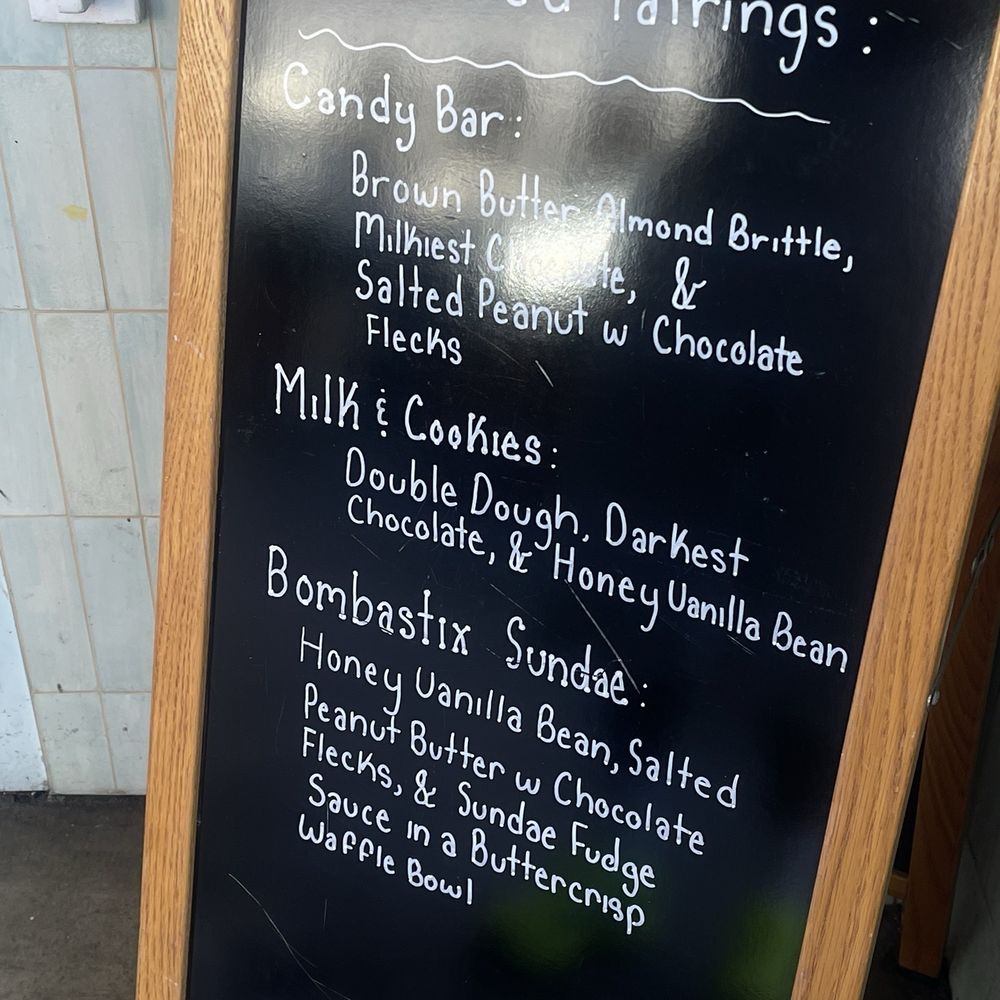 Pairings :
Candy Bar:
Brown Butter Almond Brittle,
Milkiest Chocolate, &
Salted Peanut w Chocolate
Flecks
Milk & Cookies:
Double Dough, Darkest
Chocolate, & Honey Vanilla Bean
Bombastix Sundae:
Honey Vanilla Bean, Salted
Peanut Butter w Chocolate
Flecks, & Sundae Fudge
Sauce in a Buttercrisp
Waffle Bowl